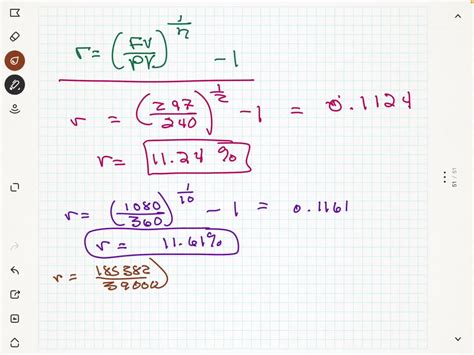 r = (FV/PV)^(1/n) - 1
r = (297/240)^(1/2) - 1 = 0.1124
r = 11.24 %
r = (1080/360)^(1/10) - 1 = 0.1161
r = 11.61%
r = (185382/39000)
15 / 15